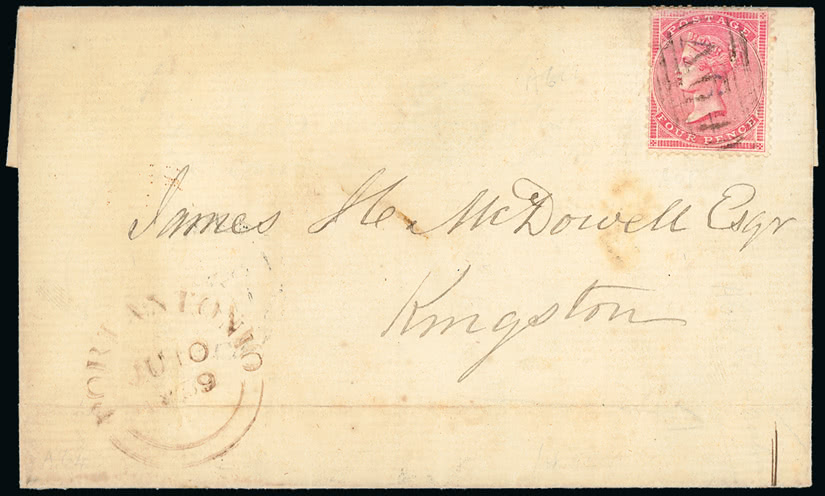 POSTAGE
FOUR PENCE
James H. McDowell Esqr
Kingston
PORT ANTONIO
JU 10